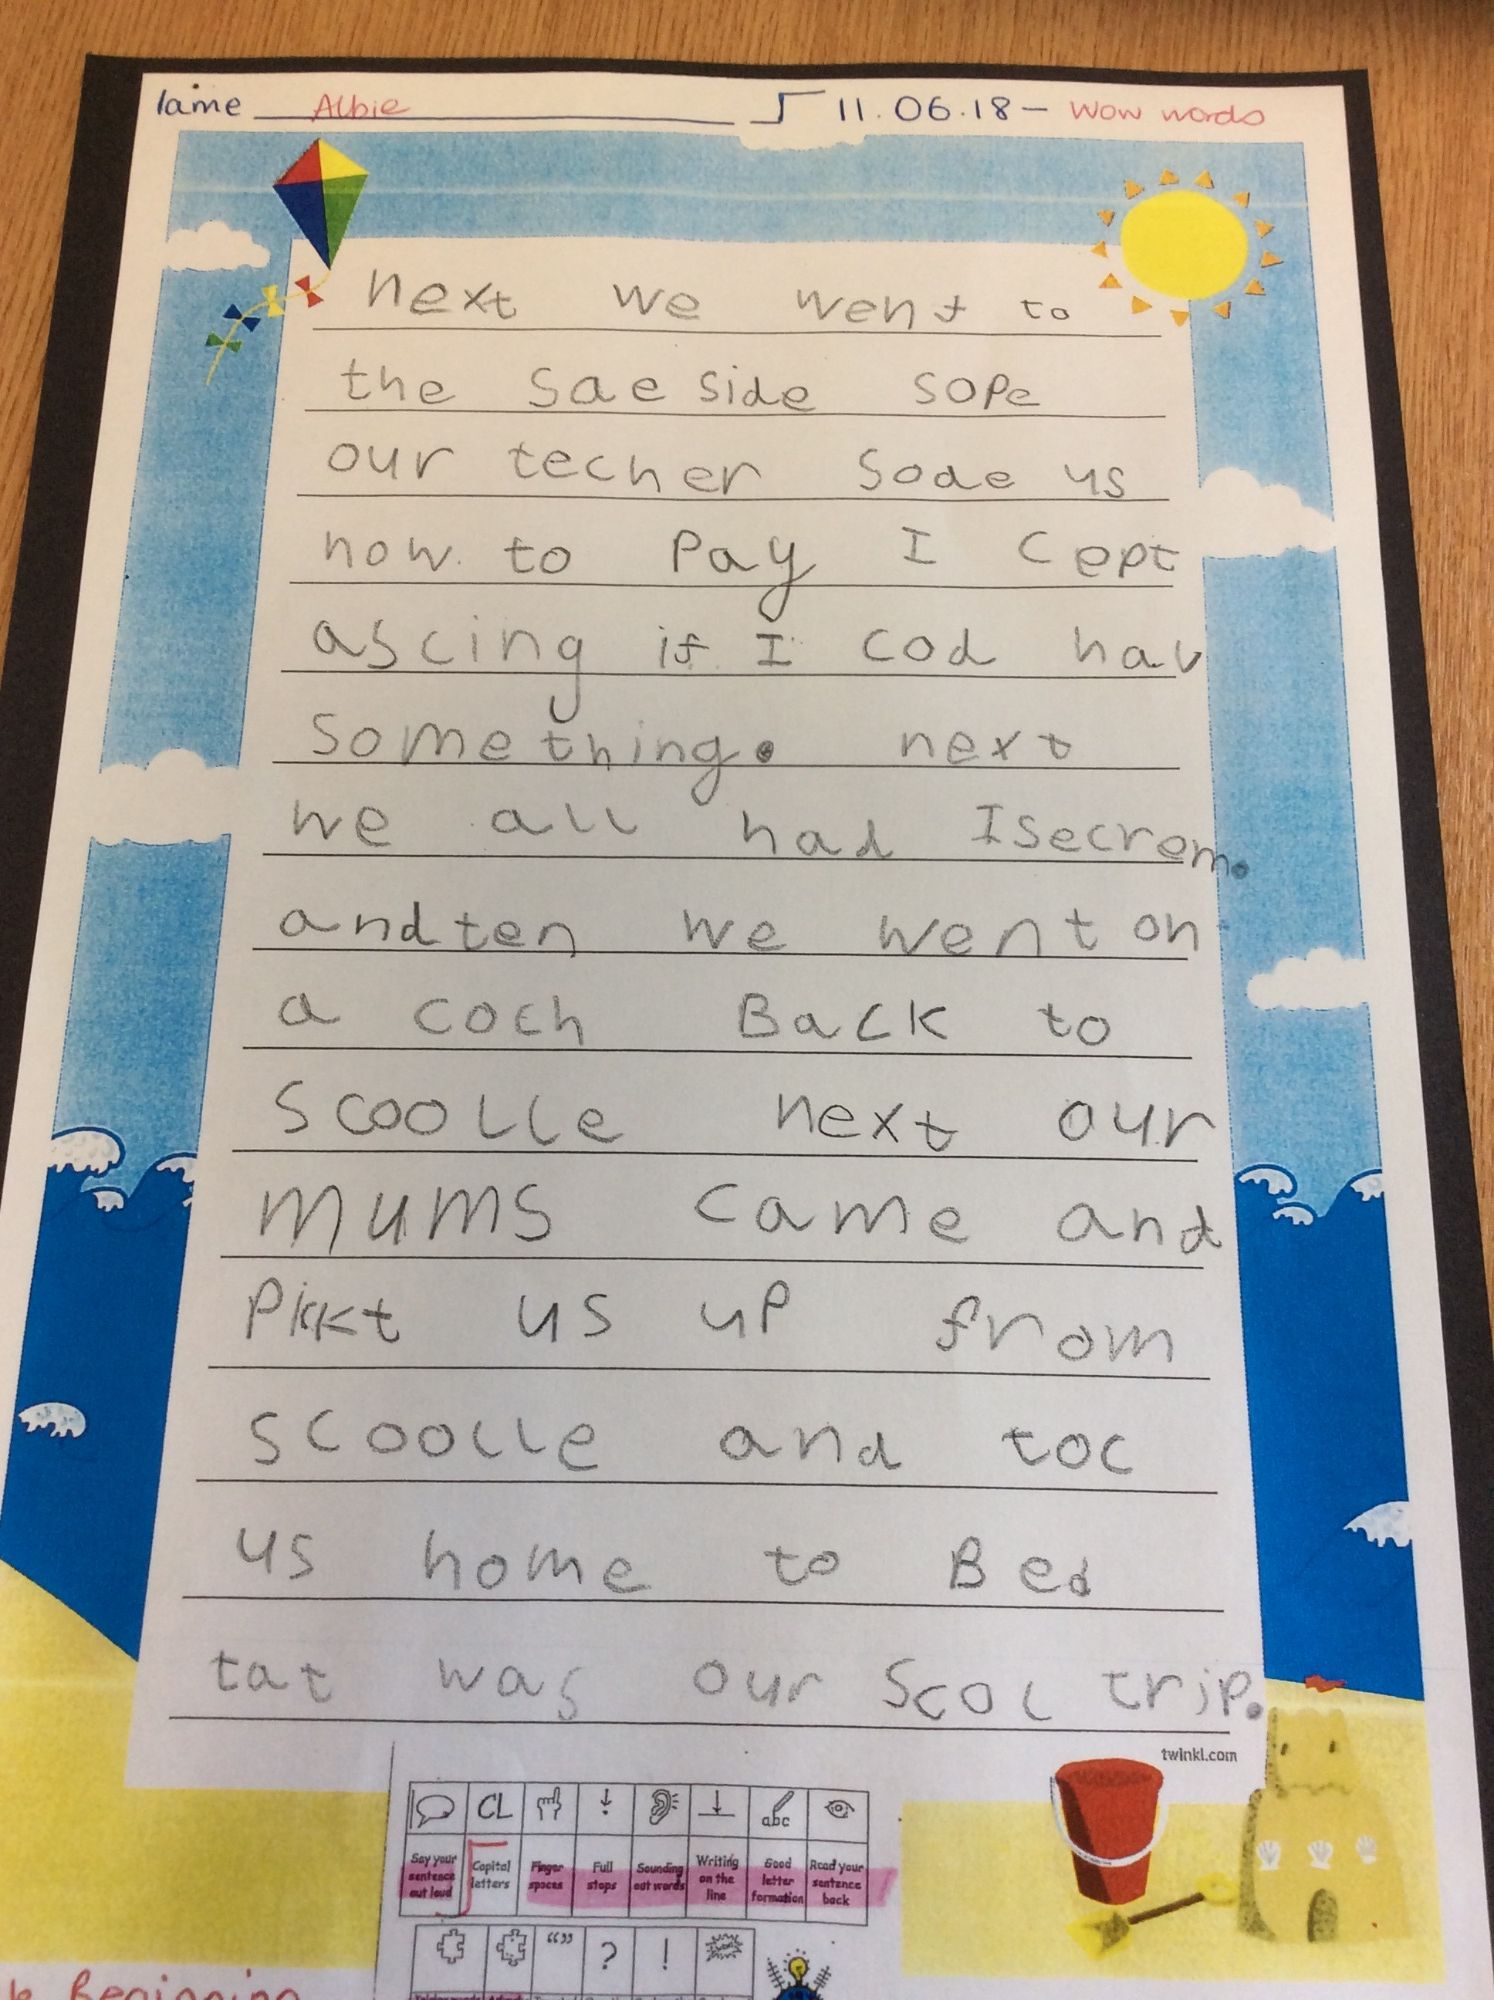 lame Albie 11.06.18 - Wow words
next we went to
the sae side sope
our techer sode us
how to pay I cept
ascing if I cod hav
something. next
we all had Isecrem.
andten we went on
a coch Back to
scoolle next our
mums came and
Pikkt us up from
scoolle and toc
us home to Bed
tat was our Scol trip.
twinkl.com
CL abc
Say your sentence out loud Capital letters Finger spaces Full stops Sounding out words Writing on the line Good letter formation Read your sentence back
“” ? !
Beginning